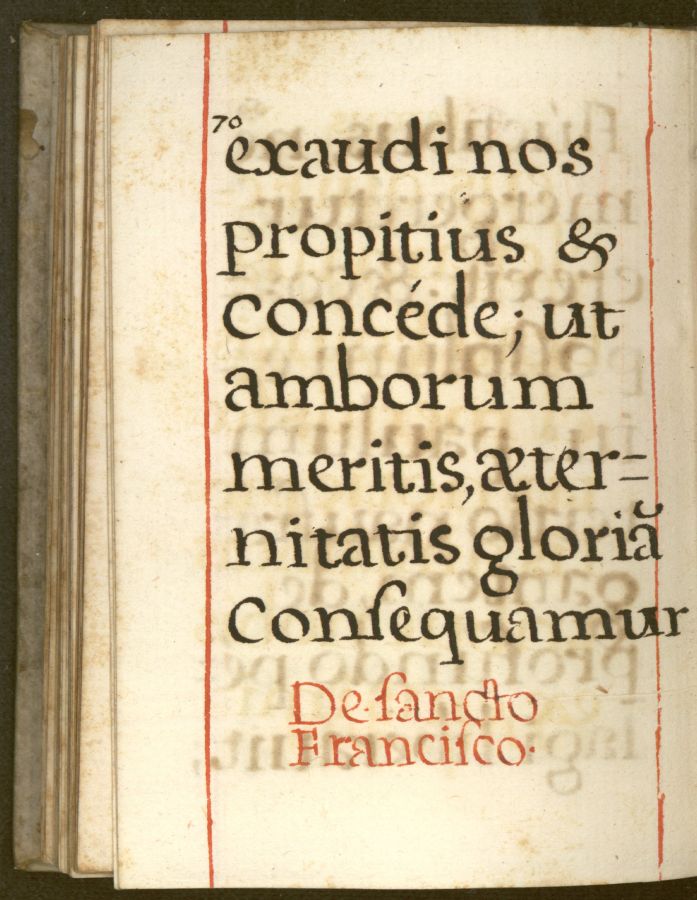 70
exaudi nos
propitius &
concéde; ut
amborum
meritis, æter=
nitatis gloriã
Conſequamur
De ſancto
Franciſco.